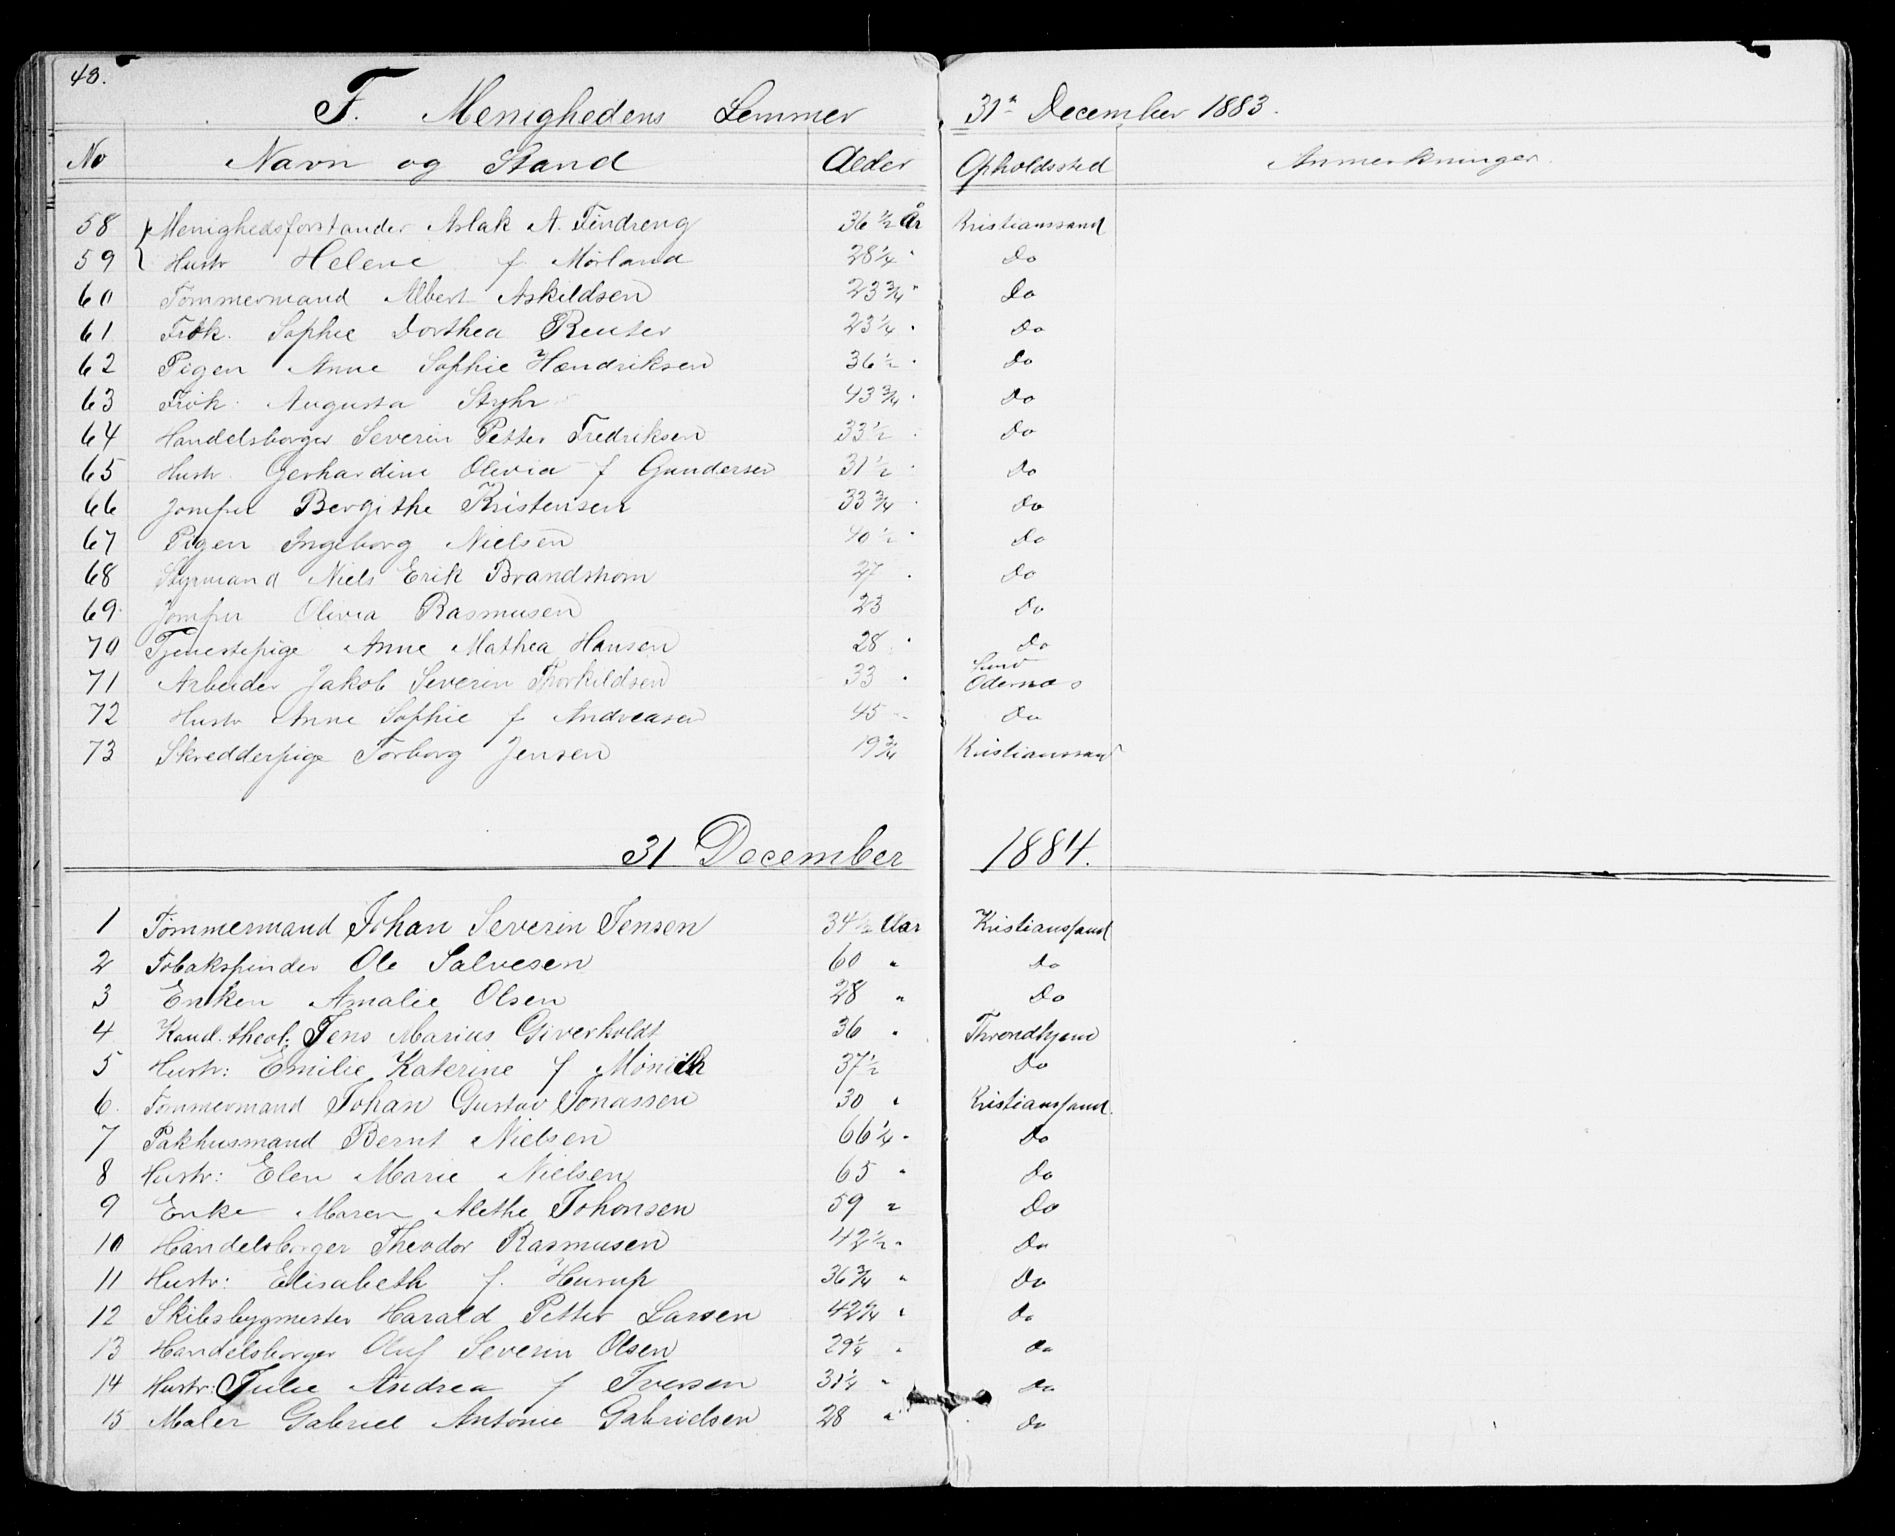 43.
F. Menighedens Lemmer 31te December 1883.
No Navn og Stand Alder Opholdssted Anmerkninger.
58 Menighedsforstander Aslak A. Findreng 36 1/2 År Kristianssand
59 Hustr Helene f Mørland 28 1/4 " Do
60 Tømmermand Albert Askildsen 23 3/4 " Do
61 Frøk. Sophie Dorthea Reuter 23 1/4 " Do
62 Pigen Anne Sophie Hændriksen 36 1/2 " Do
63 Frøk. Augusta Styhr 43 3/4 " Do
64 Handelsborger Severin Petter Fredriksen 33 1/2 " Do
65 Hustr. Gerhardine Olivia f Gundersen 31 1/2 " Do
66 Jomfru Bergithe Kristensen 33 3/4 " Do
67 Pigen Ingeborg Nielsen 40 1/2 " Do
68 Styrmand Niels Erik Brandstrom 27 " Do
69 Jomfru Olivia Rasmusen 23 Do
70 Tjenestepige Anne Mathea Hansen 28 " Do
71 Arbeider Jakob Severin Thorkildsen 33 " Odernæs
72 Hustr Anne Sophie f Andreasen 45 " Do
73 Skredderpige Torborg Jensen 19 3/4 Kristianssand
31 December 1884.
1 Tømmermand Johan Severin Jensen 34 1/2 Aar Kristianssand
2 Tobakspinder Ole Salvesen 60 " Do
3 Enken Amalie Olsen 28 " Do
4 Kand. theol: Jens Marius Giverholdt 36 " Throndhjem
5 Hustr: Emilie Katerine f Mønich 37 1/2 Do
6. Tømmermand Johan Gustav Jonassen 30 " Kristianssand.
7 Pakhusmand Bernt Nielsen 66 1/4 " Do
8 Hustr: Elen Marie Nielsen 65 " Do
9 Enke Maren Alethe Johonsen 59 " Do
10 Handelsborger Theodor Rasmusen 42 1/2 " Do
11 Hustr: Elisabeth f. Hurup 36 3/4 " Do
12 Skibsbygmester Harald Petter Larsen 42 3/4 " Do
13 Handelsborger Oluf Severin Olsen 29 1/2 " Do
14 Hustr: Julie Andrea f Iversen 31 1/4 " Do
15 Maler Gabriel Antonie Gabrielsen 28 " Do